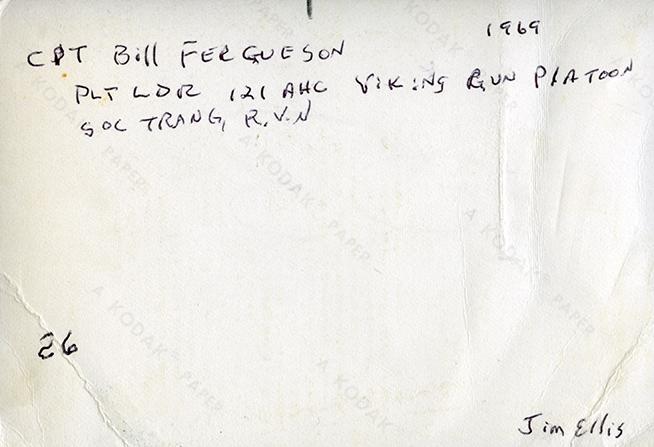 1969
CPT Bill FERGUESON
PLT LDR 121 AHC ViKiNG GUN PLATOON
SOC TRANG, R.V.N
A KODAK PAPER
A KODAK PAPER
A KODAK PAPER
A KODAK PAPER
A KODAK PAPER
26
Jim Ellis